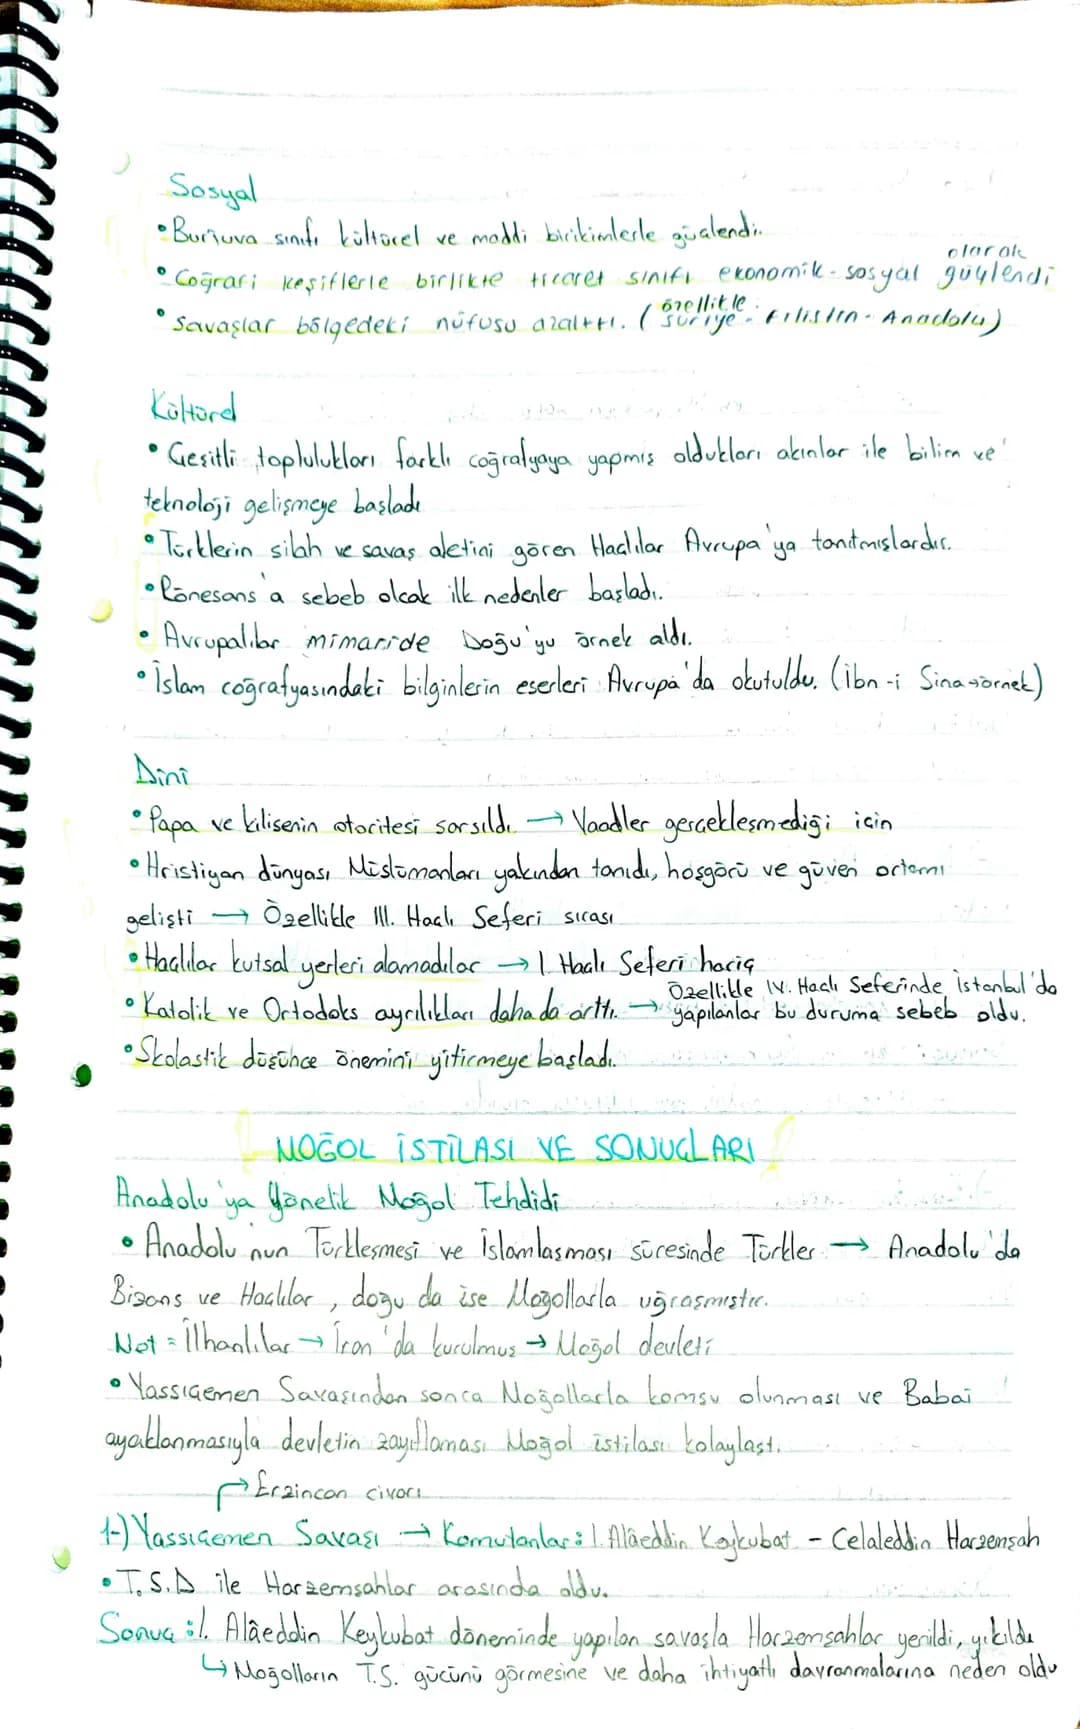 Sosyal
• Burjuva sınıfı kültürel ve maddi birikimlerle güçlendi.
• Coğrafi keşiflerle birlikte ticaret sınıfı ekonomik-sosyal olarak güçlendi
• Savaşlar bölgedeki nüfusu azalttı. (özellikle Suriye - Filistin - Anadolu)
Kültürel
• Çeşitli toplulukları farklı coğrafyaya yapmış oldukları akınlar ile bilim ve
teknoloji gelişmeye başladı
• Türklerin silah ve savaş aletini gören Haçlılar Avrupa'ya tanıtmışlardır.
• Rönesans'a sebeb olcak ilk nedenler başladı.
• Avrupalılar mimaride Doğu'yu örnek aldı.
• İslam coğrafyasındaki bilginlerin eserleri Avrupa'da okutuldu. (İbn-i Sina→örnek)
Dini
• Papa ve kilisenin otoritesi sarsıldı. → Vaadler gerçekleşmediği için
• Hristiyan dünyası Müslümanları yakından tanıdı, hoşgörü ve güven ortamı
gelişti → Özellikle III. Haçlı Seferi sırası
• Haçlılar kutsal yerleri alamadılar → I. Haçlı Seferi hariç
• Katolik ve Ortodoks ayrılıkları daha da arttı. → Özellikle IV. Haçlı Seferinde İstanbul'da
yapılanlar bu duruma sebeb oldu.
• Skolastik düşünce önemini yitirmeye başladı.
MOĞOL İSTİLASI VE SONUÇLARI
Anadolu'ya Yönelik Moğol Tehdidi
• Anadolu'nun Türkleşmesi ve İslamlaşması süresinde Türkler → Anadolu'da
Bizans ve Haçlılar, doğu da ise Moğollarla uğraşmıştır.
Not = İlhanlılar → İran'da kurulmuş → Moğol devleti
• Yassıçemen Savaşından sonra Moğollarla komşu olunması ve Babai
ayaklanmasıyla devletin zayıflaması Moğol istilası kolaylaştı.
→ Erzincan civarı
1-) Yassıçemen Savaşı → Komutanlar: I. Alâeddin Keykubat - Celaleddin Harzemşah
• T.S.D ile Harzemşahlar arasında oldu.
Sonuç: I. Alâeddin Keykubat döneminde yapılan savaşla Harzemşahlar yenildi, yıkıldı
↳ Moğolların T.S. gücünü görmesine ve daha ihtiyatlı davranmalarına neden oldu